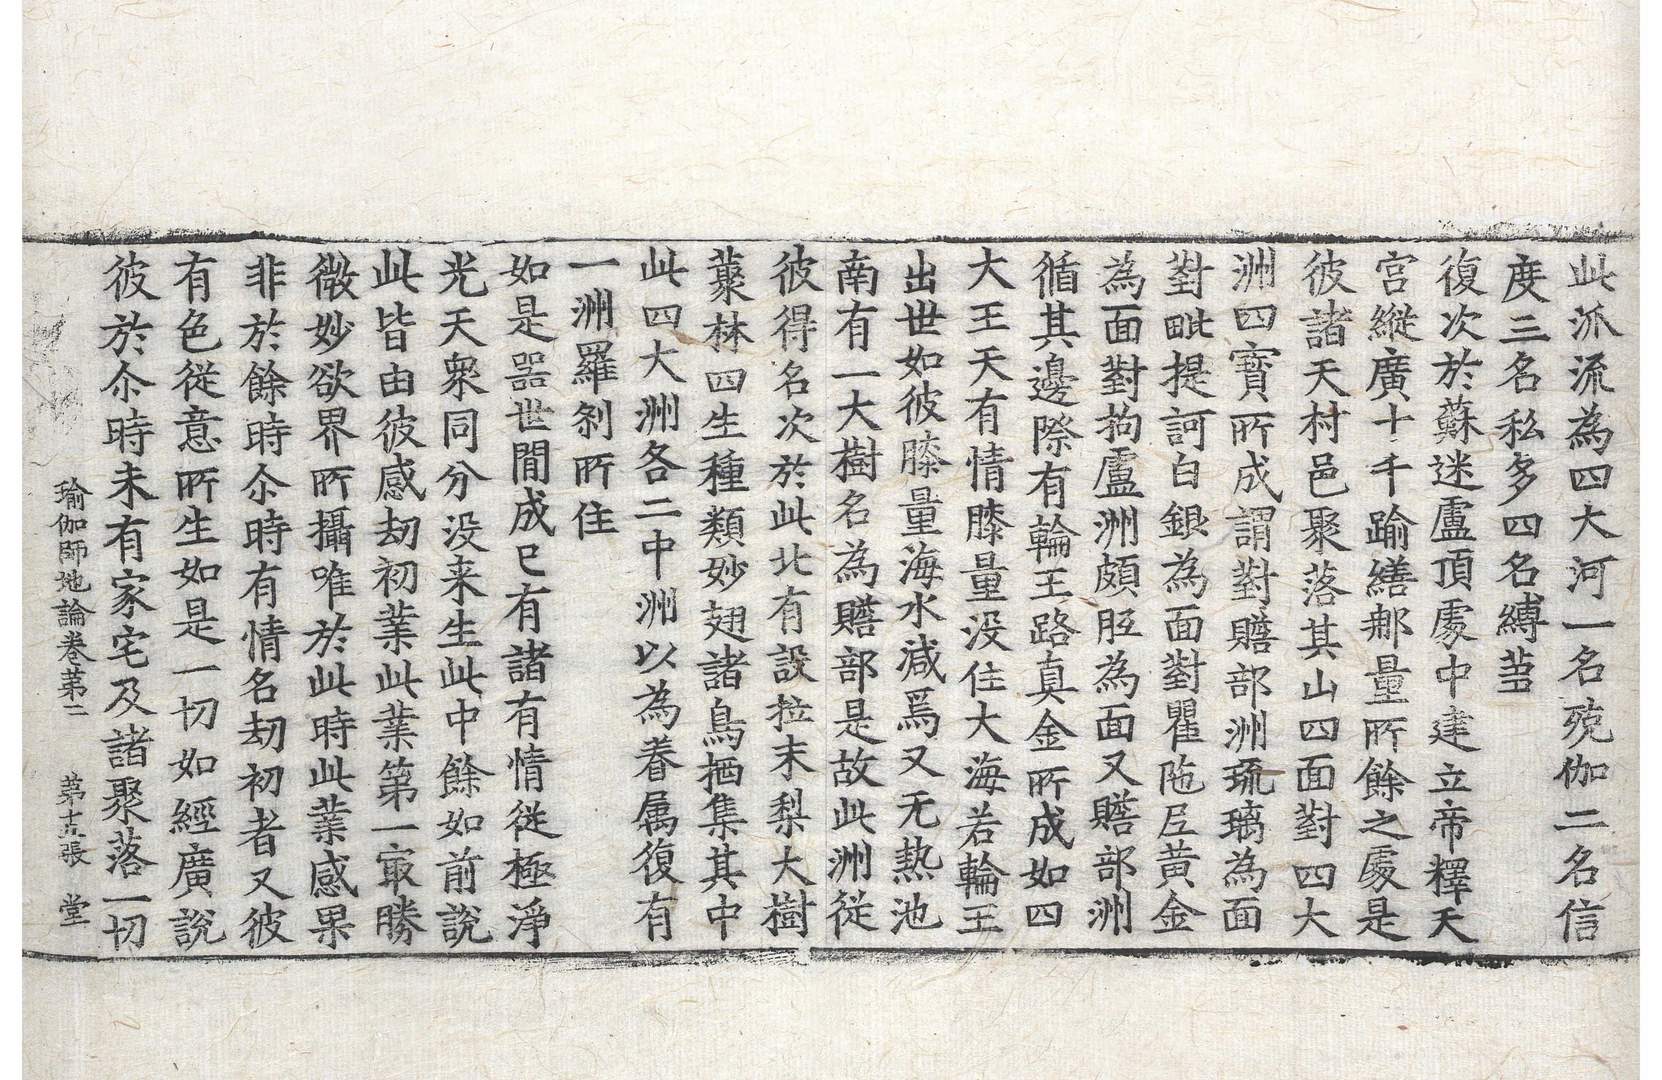 此派流為四大河一名殑伽二名信
度三名私多四名縛芻
復次於蘇迷盧頂處中建立帝釋天
宮縱廣十千踰繕那量所餘之處是
彼諸天村邑聚落其山四面對四大
洲四寶所成謂對贍部洲琉璃為面
對毗提訶白銀為面對瞿陁尼黃金
為面對拘盧洲頗胝為面又贍部洲
循其邊際有輪王路真金所成如四
大王天有情膝量没住大海若輪王
出世如彼膝量海水減焉又无熱池
南有一大樹名為贍部是故此洲從
彼得名次於此北有設拉末梨大樹
藂林四生種類妙翅諸鳥栖集其中
此四大洲各二中洲以為眷属復有
一洲羅剎所住
如是器世間成已有諸有情從極淨
光天衆同分没来生此中餘如前說
此皆由彼感劫初業此業第一㝡勝
微妙欲界所攝唯於此時此業感果
非於餘時尒時有情名劫初者又彼
有色從意所生如是一切如經廣說
彼於尒時未有家宅及諸聚落一切
瑜伽師地論卷第二 第十五張 堂